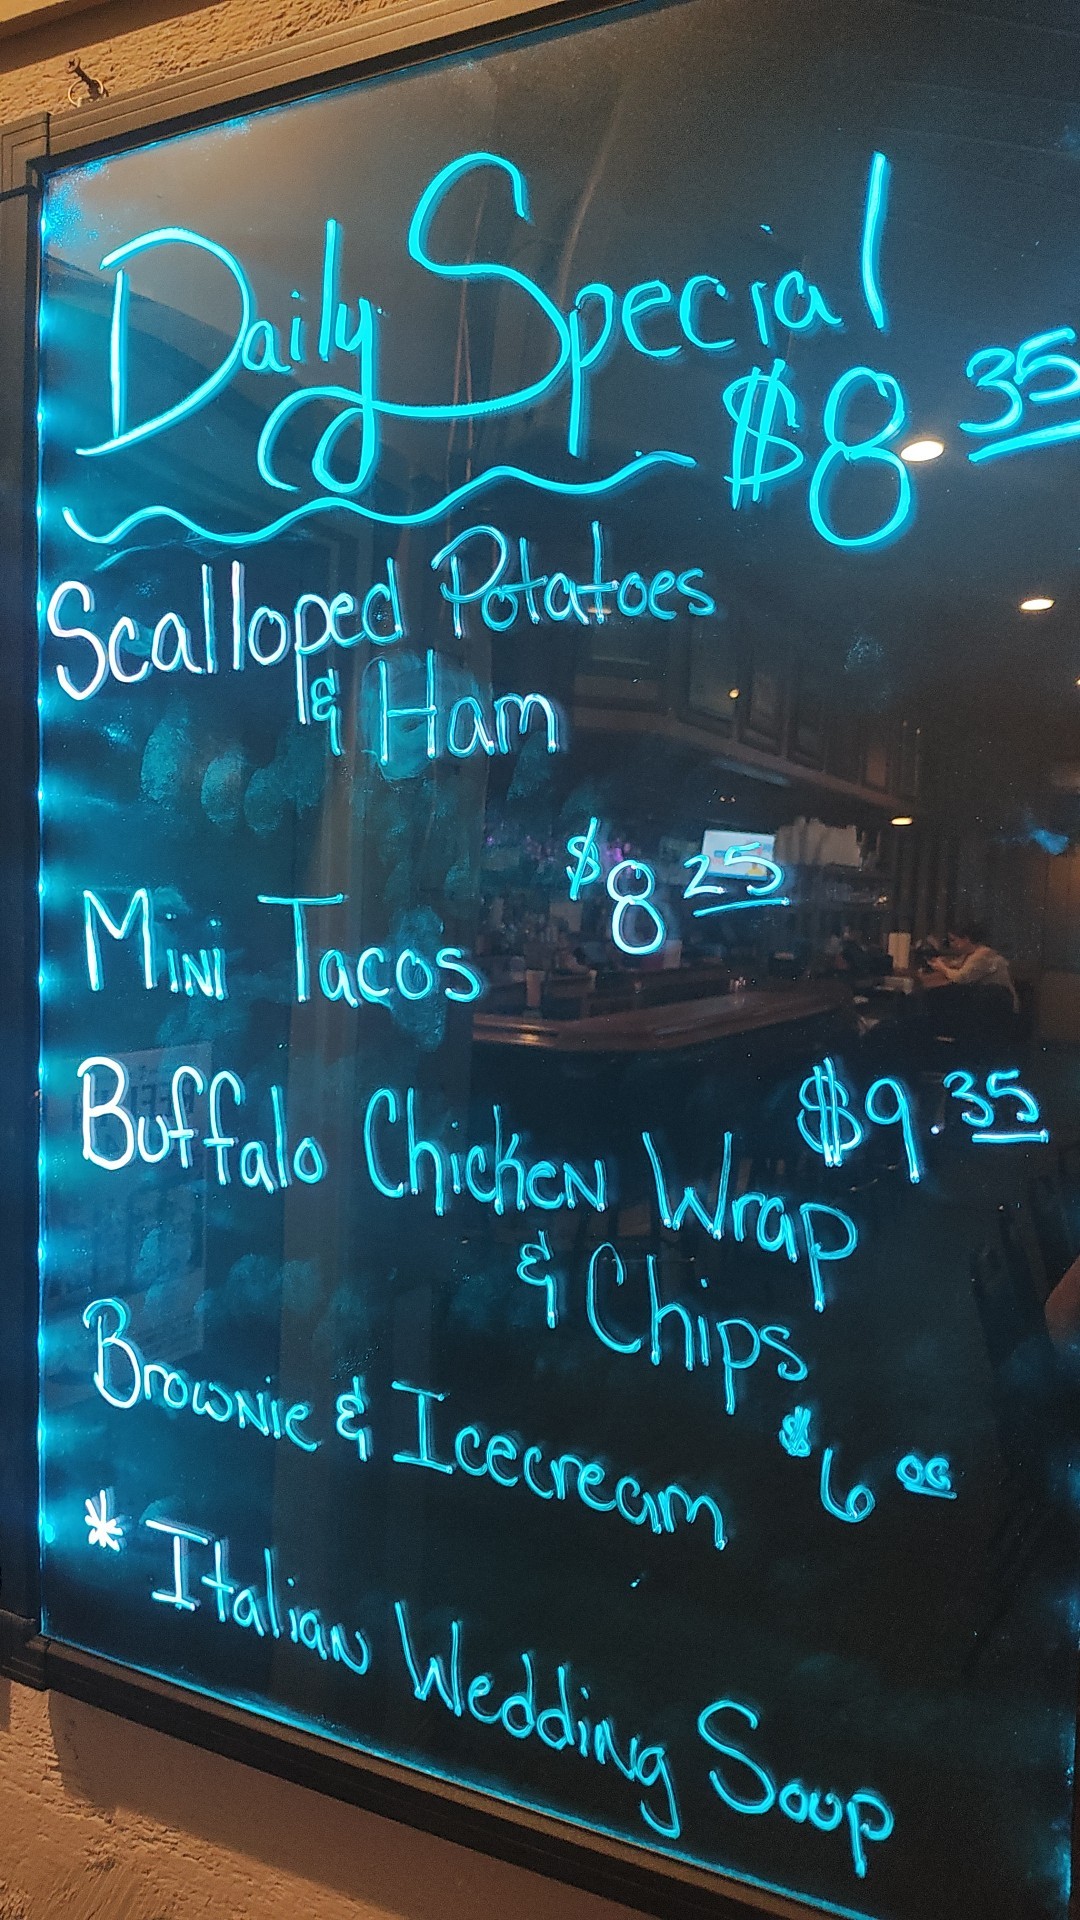 Daily Special
$8 35
Scalloped Potatoes
& Ham
$8 25
Mini Tacos
$9.35
Buffalo Chicken Wrap
& Chips
Brownie & Icecream $6 00
* Italian Wedding Soup